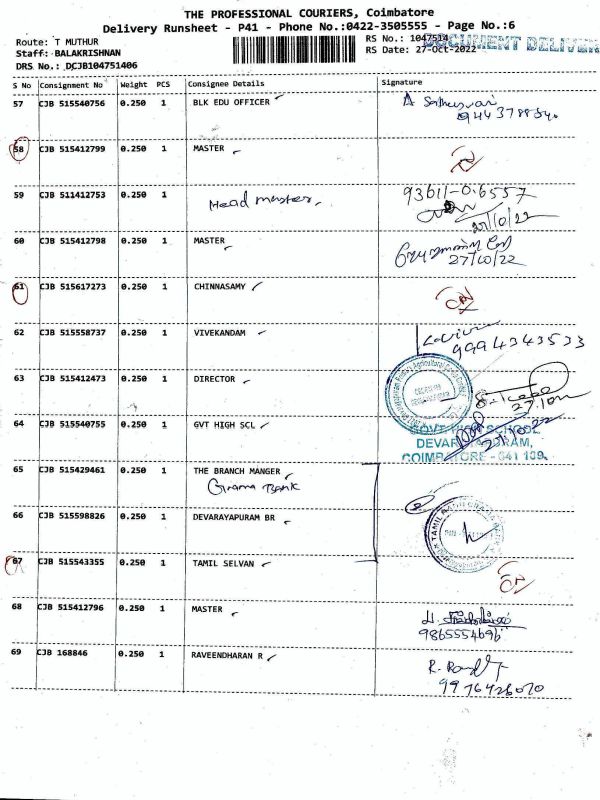 THE PROFESSIONAL COURIERS, Coimbatore
Delivery Runsheet - P41 - Phone No.:0422-3505555 - Page No.:6
Route: T MUTHUR
RS No.: 1047514
DOCUMENT DELIVER
Staff: BALAKRISHNAN
RS Date: 27-Oct-2022
DRS No.: DCJB104751406
S No Consignment No Weight PCS Consignee Details Signature
57 CJB 515540756 0.250 1 BLK EDU OFFICER
58 CJB 515412799 0.250 1 MASTER
59 CJB 511412753 0.250 1 Head master 93611-06557
27/10/22
60 CJB 515412798 0.250 1 MASTER
27/10/22
61 CJB 515617273 0.250 1 CHINNASAMY
62 CJB 515558737 0.250 1 VIVEKANDAM
9994343533
63 CJB 515412473 0.250 1 DIRECTOR
64 CJB 515540755 0.250 1 GVT HIGH SCL
GOVT HIGH SCHOOL
DEVARAYAPURAM,
COIMBATORE - 641 109.
65 CJB 515429461 0.250 1 THE BRANCH MANGER
Grama Bank
66 CJB 515598826 0.250 1 DEVARAYAPURAM BR
67 CJB 515543355 0.250 1 TAMIL SELVAN
68 CJB 515412796 0.250 1 MASTER
9865554696
69 CJB 168846 0.250 1 RAVEENDHARAN R
9976426070